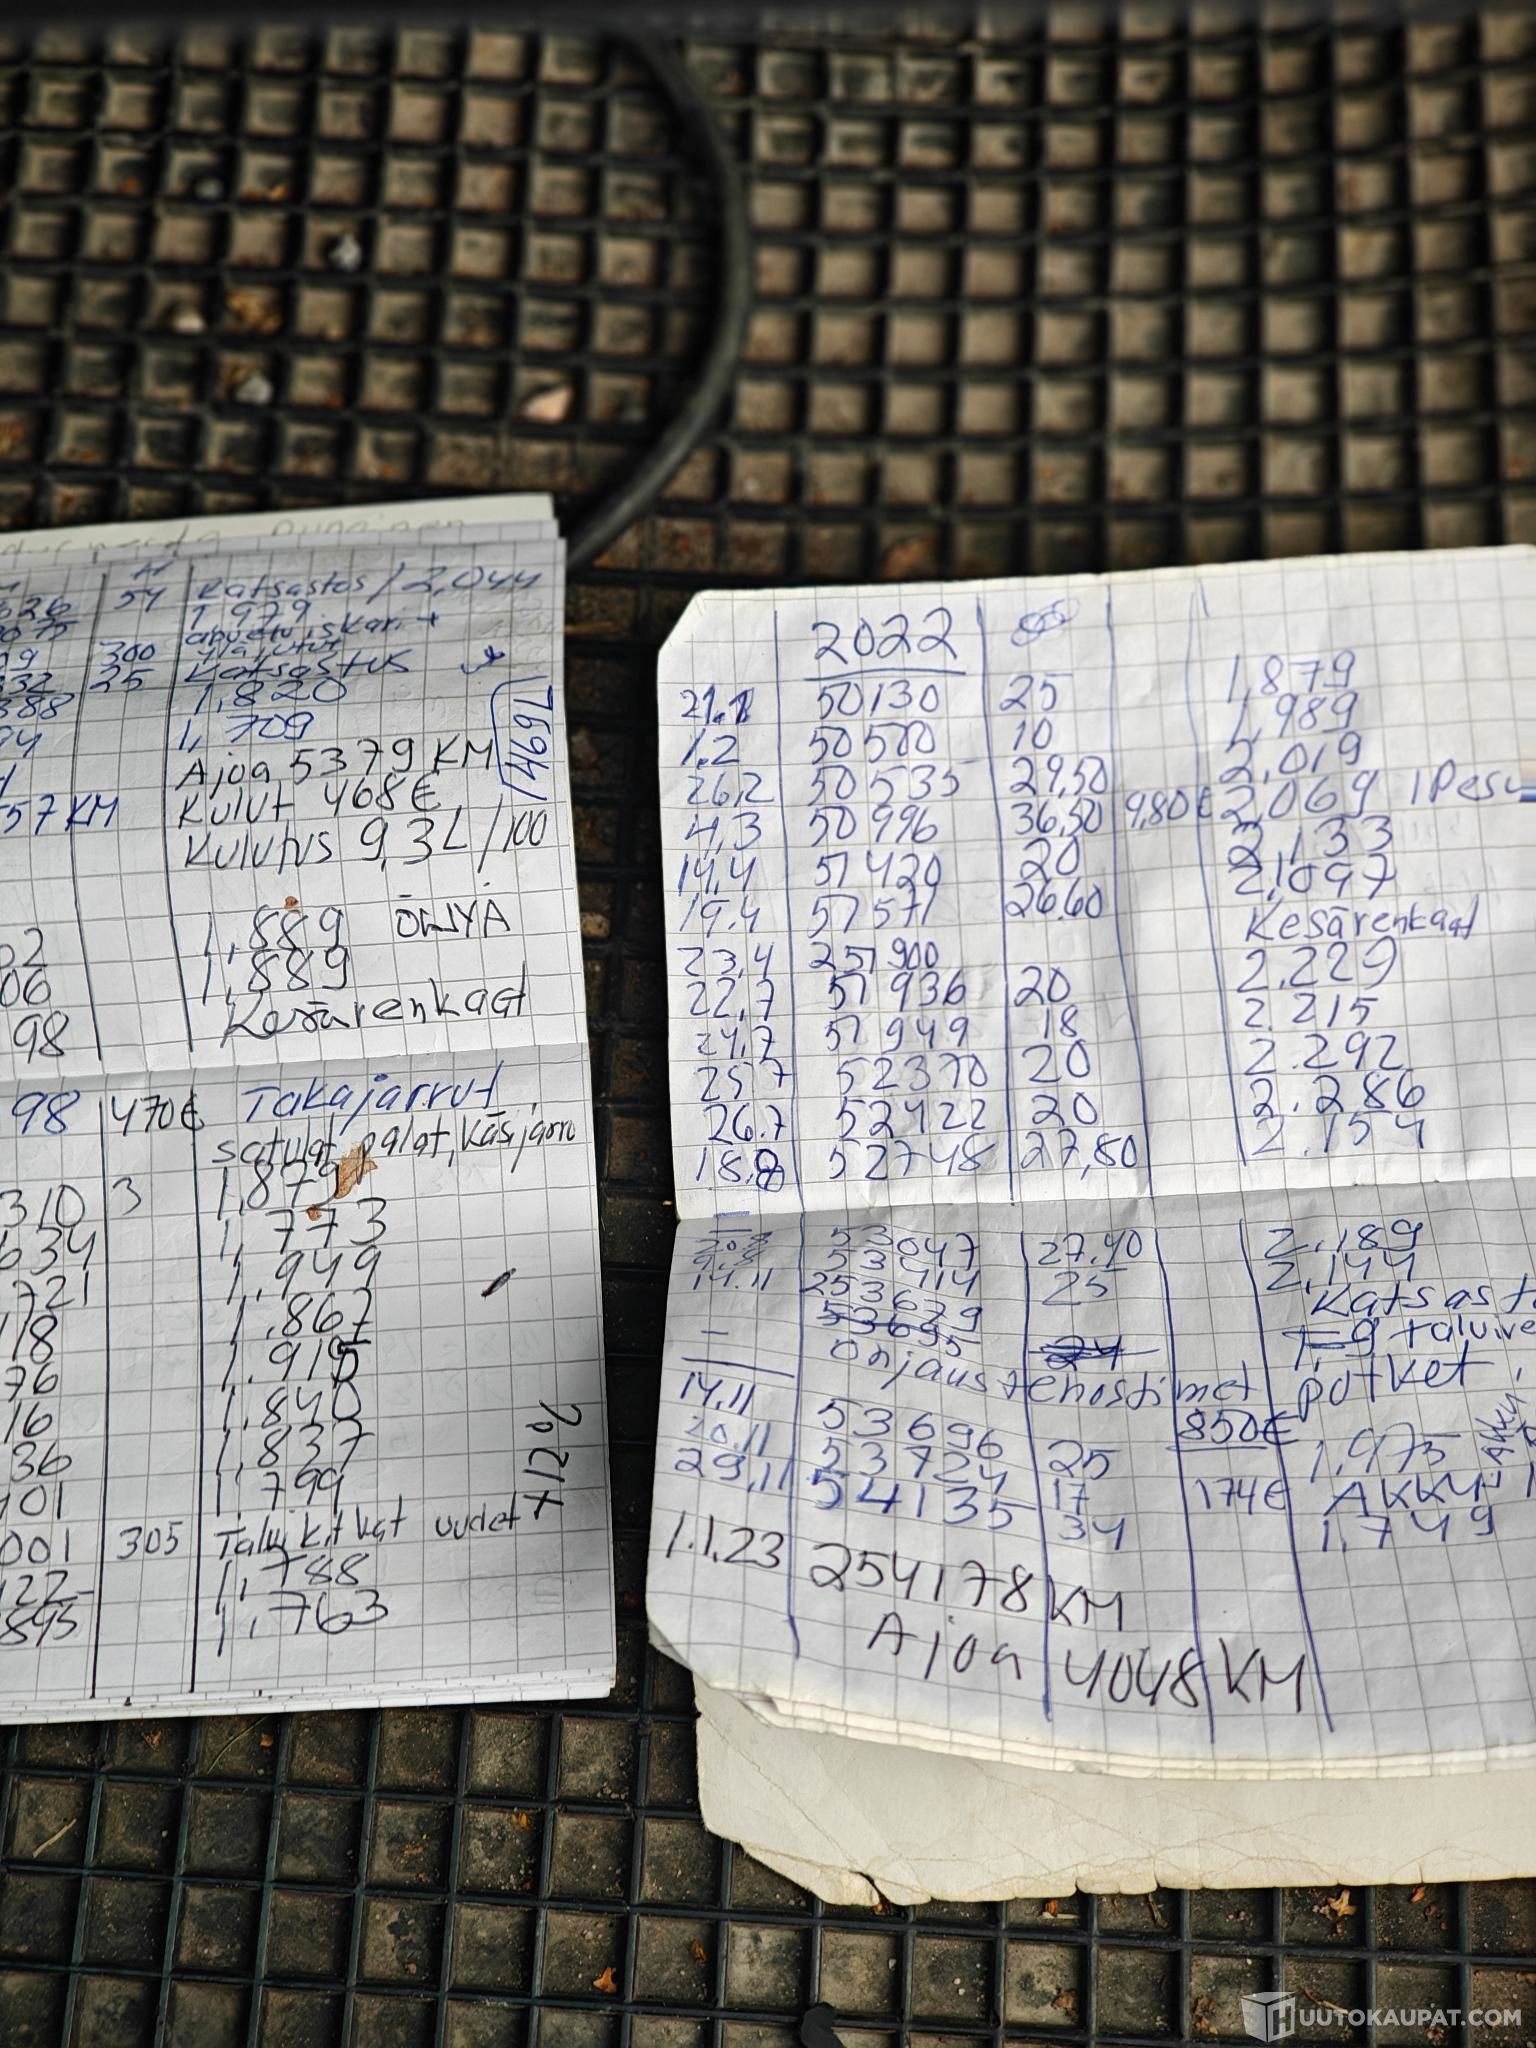 54 Katsastus / 2,044
1 979
300
25 Katsastus
388 1,820
94 1,709
1469L
Ajoa 5379 KM
57 KM Kulut 468€
Kulutus 9,3L/100
02 1,889 ÖLJYÄ
06 1,889
98 Kesärenkaat
98 470€ Takajarrut
satulat, palat, käsijarru
310 3 1,879
634 1,773
721 1,949
18 1,867
76 1,915
16 1,840
36 1,837
101 1,799
+12%
001 305 Talvikitkat uudet
122 1,788
895 1,763
2022
21.1 50130 25 1,879
1.2 50500 10 1,989
26,2 50535 29,50 2,019
4,3 50996 36,50 9,80€ 2,069 1 Pesu
14,4 51420 20 2,133
19.4 51571 26.60 2,097
23,4 251900 Kesärenkaat
22,7 51936 20 2.229
24,7 51949 18 2.215
25.7 52370 20 2.292
26.7 52422 20 2.286
18.8 52748 27,80 2.154
53047 27.40 2,189
53414 25 2,144
14.11 253679 Katsast
53695 24
ohjaustehostimet putket,
14.11 53696 850€
20.11 53724 25 1,975
29,11 54135 17 174€ AKKU
34 1,749
1.1.23 254178 KM
Ajoa 4048 KM
HUUTOKAUPAT.COM